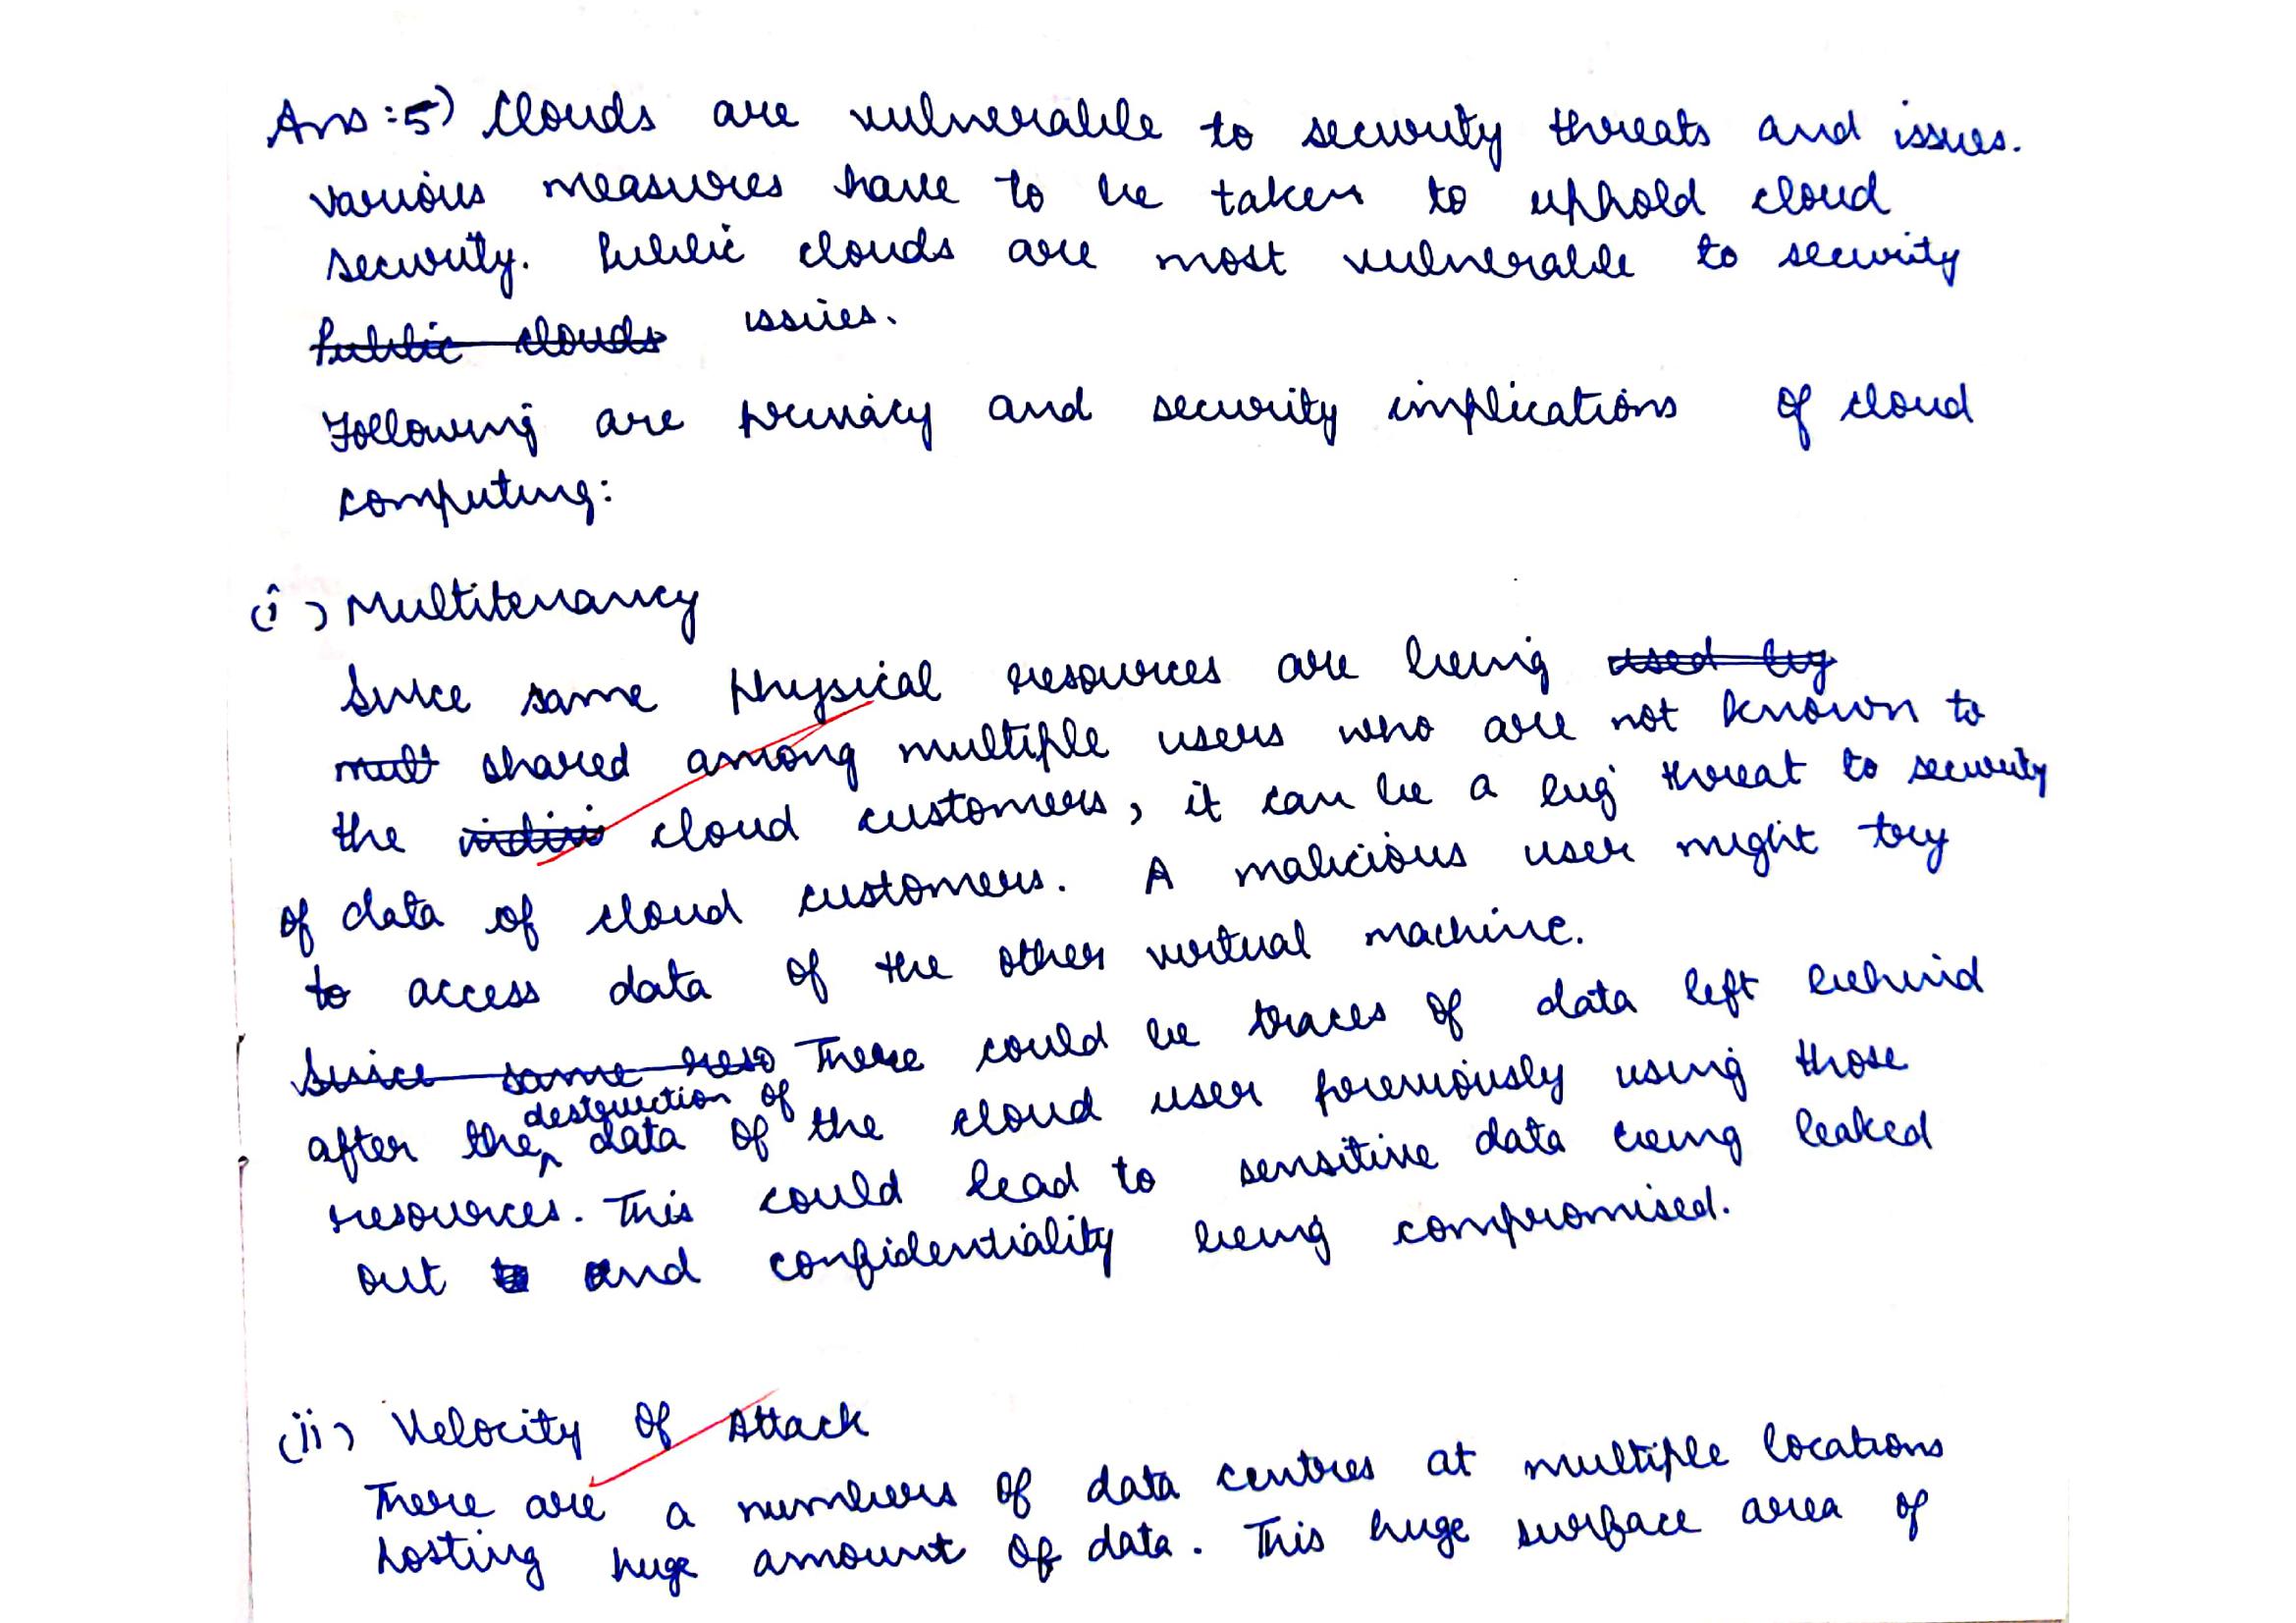 Ans:5) Clouds are vulnerable to security threats and issues.
Various measures have to be taken to uphold cloud
security. Public clouds are most vulnerable to security
Public clouds issues.
Following are privacy and security implications of cloud
computing:
(i) Multitenancy
Since same physical resources are being used by
mult shared among multiple users who are not known to
the cloud customers, it can be a big threat to security
of data of cloud customers. A malicious user might try
to access data of the other virtual machine.
Since same reso There could be traces of data left behind
destruction of
after the data of the cloud user previously using those
resources. This could lead to sensitive data being leaked
out and confidentiality being compromised.
(ii) Velocity of Attack
There are a numbers of data centres at multiple locations
hosting huge amount of data. This huge surface area of